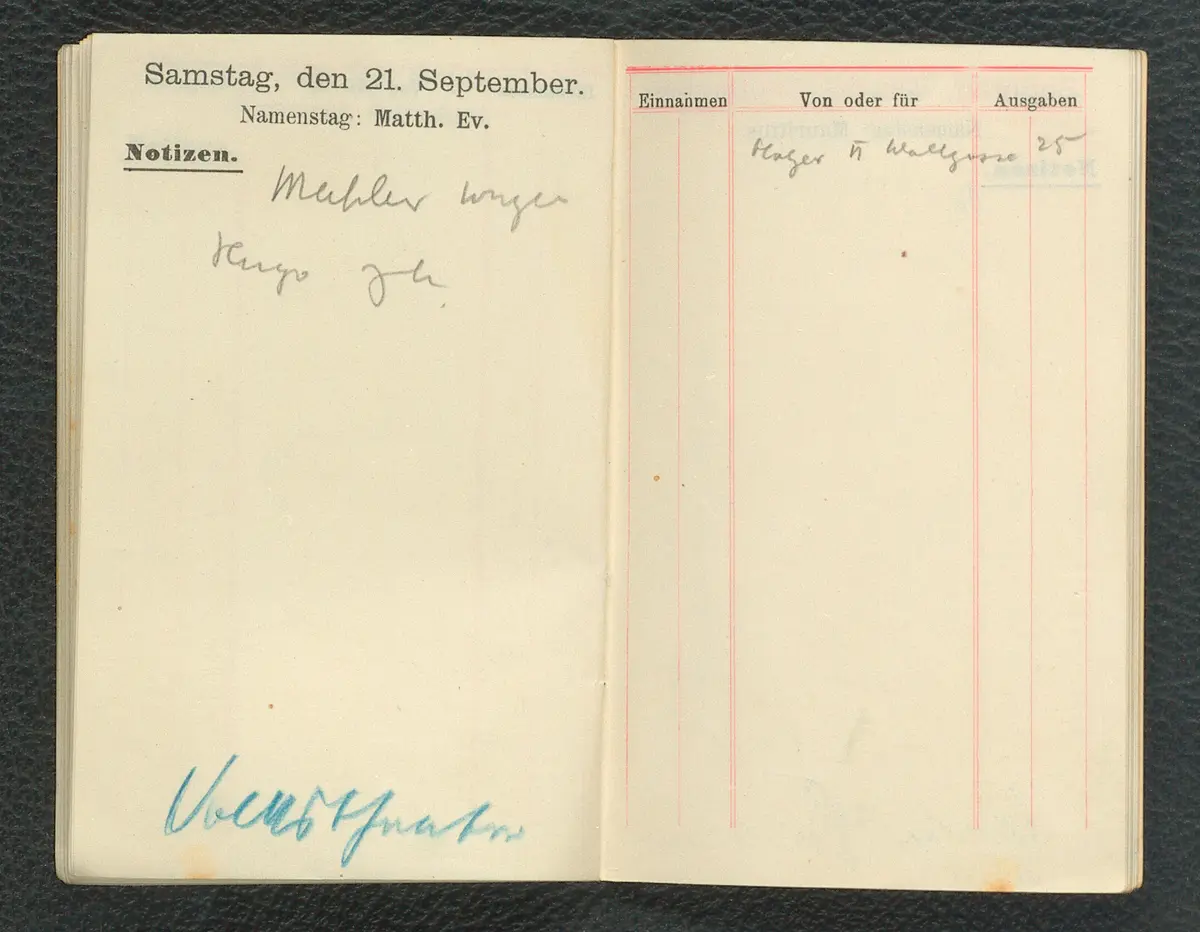 Samstag, den 21. September.
Namenstag: Matth. Ev.
Notizen.
Mahler
Hugo
Volkstheater
Einnahmen
Von oder für
Ausgaben
VI Wallgasse 25